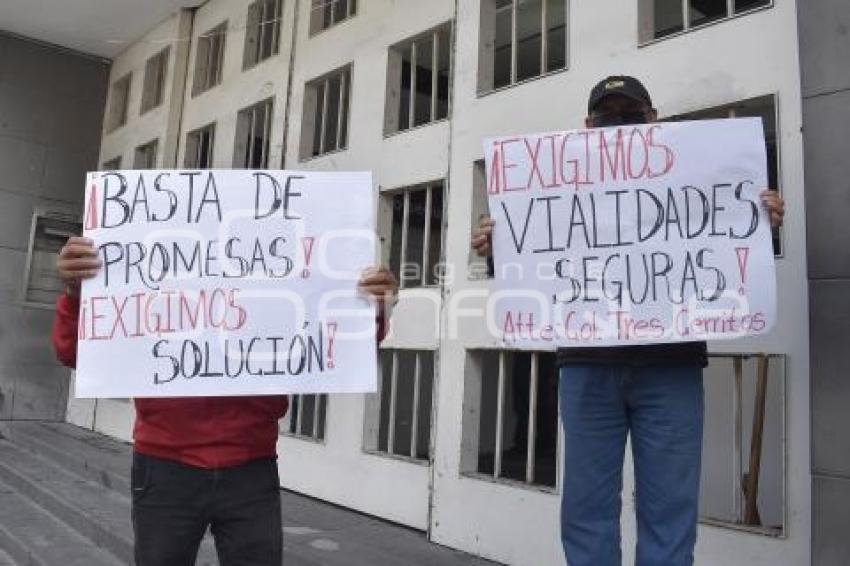 ¡BASTA DE
PROMESAS!
¡EXIGIMOS
SOLUCIÓN!
¡EXIGIMOS
VIALIDADES
SEGURAS!
Atte. Col. Tres Cerritos
agencia
enfoque